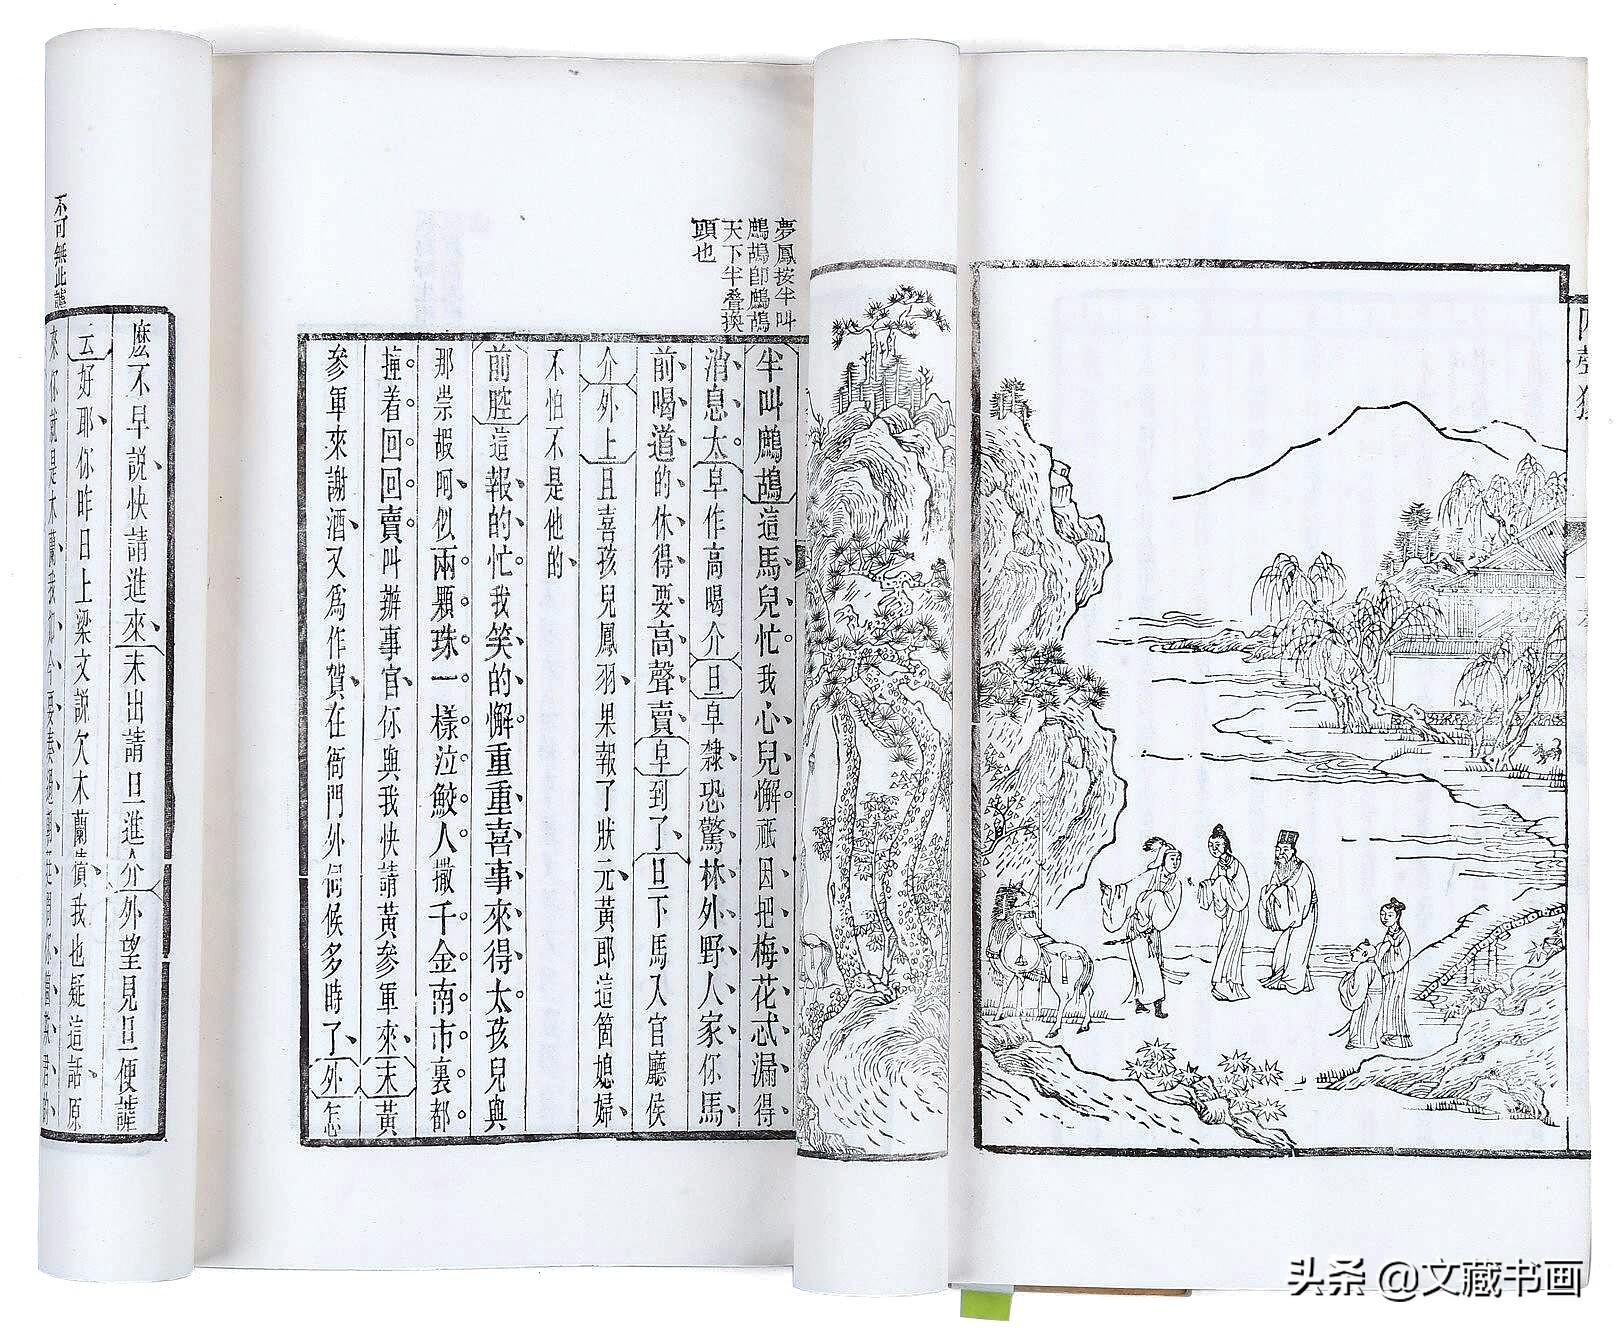 四聲猿
夢鳳按半叫
鷓鴣卽鷓鴣
天下半疊換
頭也
半叫鷓鴣這馬兒忙我心兒懈祇因把梅花忒漏得
消息太皁作高喝介旦皁隸恐驚林外野人家你馬
前喝道的休得要高聲賣皁到了旦下馬入官廳侯
介外上且喜孩兒鳳羽果報了狀元黃郎這箇媳婦
不怕不是他的
前腔這報的忙我笑的懈重重喜事來得太孩兒與
那崇嘏呵似兩顆珠一樣泣鮫人撒千金南市裏都
撞着回回賣叫辦事官你與我快請黃參軍來末黃
參軍來謝酒又爲作賀在衙門外伺候多時了外怎
不可無此謔
麽不早説快請進來末出請旦進介外望見旦便謔
云好耶你昨日上梁文説欠木蘭債我也疑這話原
來你就是木蘭我如今要奏過朝廷
头条 @文藏书画